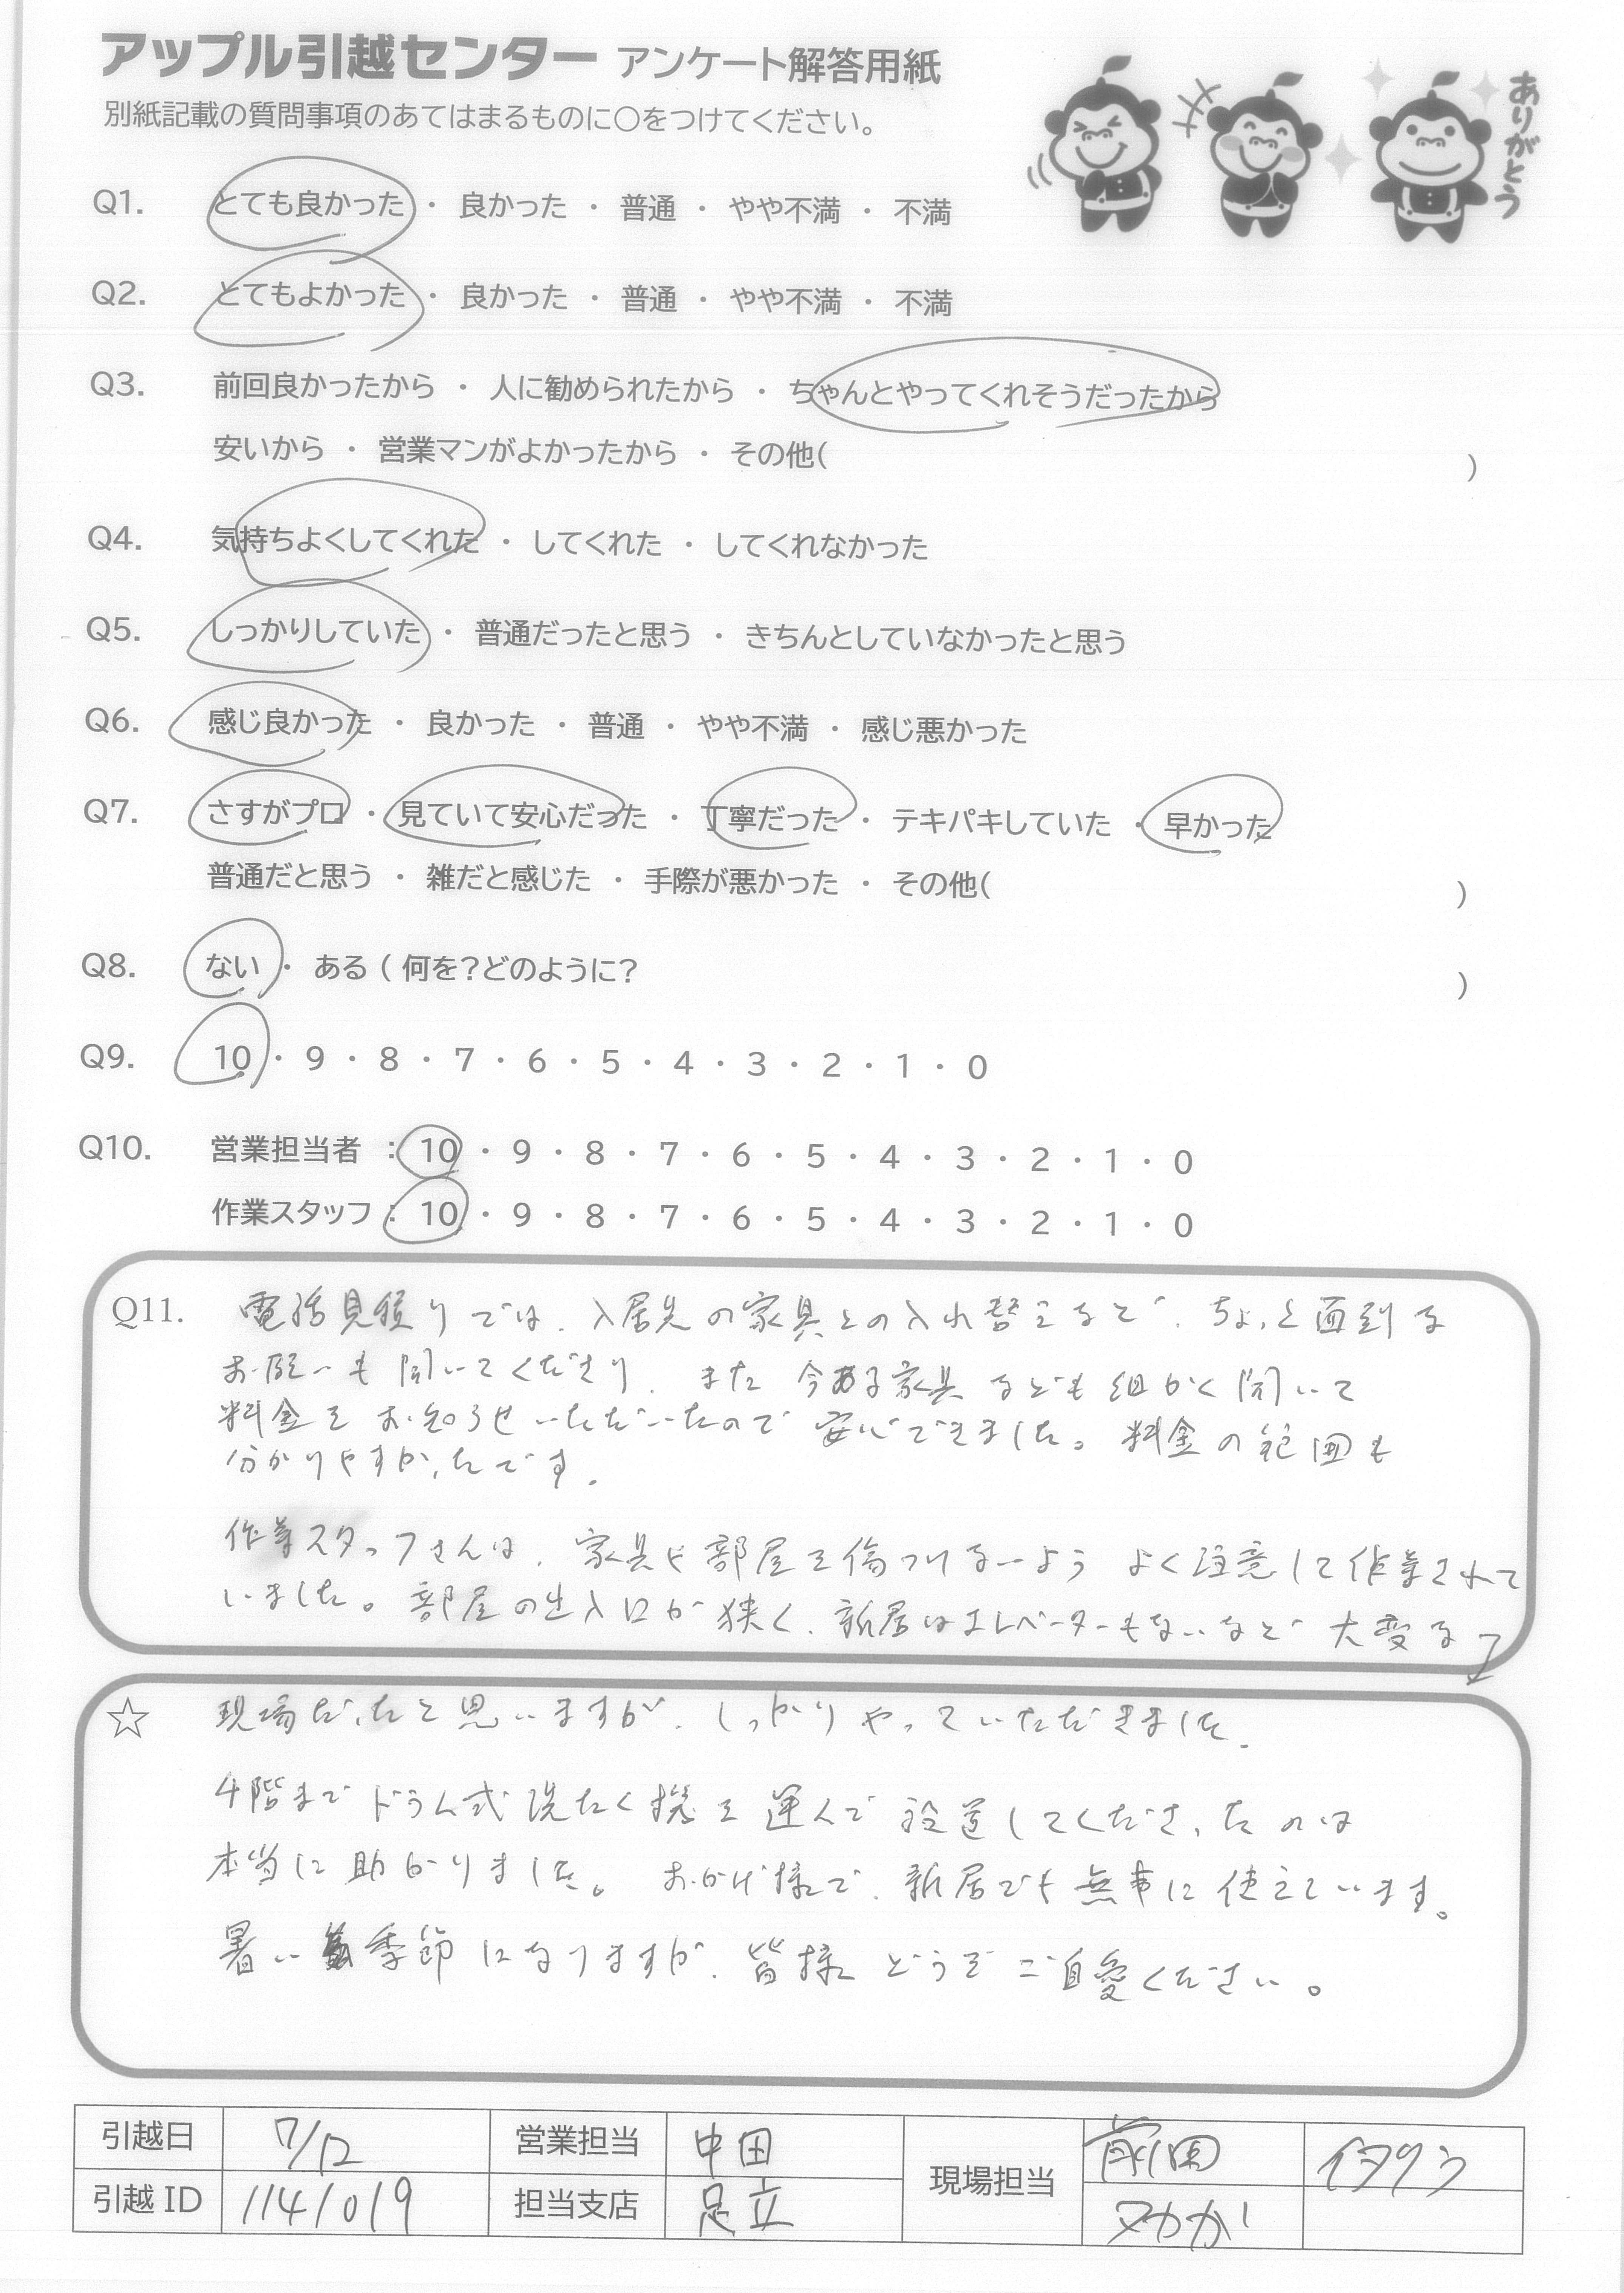 アップル引越センター アンケート解答用紙
別紙記載の質問事項のあてはまるものに○をつけてください。
ありがとう
Q1. とても良かった ・ 良かった ・ 普通 ・ やや不満 ・ 不満
Q2. とてもよかった ・ 良かった ・ 普通 ・ やや不満 ・ 不満
Q3. 前回良かったから ・ 人に勧められたから ・ ちゃんとやってくれそうだったから
安いから ・ 営業マンがよかったから ・ その他( )
Q4. 気持ちよくしてくれた ・ してくれた ・ してくれなかった
Q5. しっかりしていた ・ 普通だったと思う ・ きちんとしていなかったと思う
Q6. 感じ良かった ・ 良かった ・ 普通 ・ やや不満 ・ 感じ悪かった
Q7. さすがプロ ・ 見ていて安心だった ・ 丁寧だった ・ テキパキしていた ・ 早かった
普通だと思う ・ 雑だと感じた ・ 手際が悪かった ・ その他( )
Q8. ない ・ ある ( 何を?どのように? )
Q9. 10 ・ 9 ・ 8 ・ 7 ・ 6 ・ 5 ・ 4 ・ 3 ・ 2 ・ 1 ・ 0
Q10. 営業担当者 : 10 ・ 9 ・ 8 ・ 7 ・ 6 ・ 5 ・ 4 ・ 3 ・ 2 ・ 1 ・ 0
作業スタッフ : 10 ・ 9 ・ 8 ・ 7 ・ 6 ・ 5 ・ 4 ・ 3 ・ 2 ・ 1 ・ 0
Q11. 電話見積りでは、入居先の家具との入れ替えなど、ちょっと面倒な
お願いも聞いてくださり、また今ある家具なども細かく聞いて
料金をお知らせいただいたので安心できました。料金の範囲も
分かりやすかったです。
作業スタッフさんは、家具や部屋を傷つけないよう よく注意して作業されて
いました。部屋の出入口が狭く、新居はエレベーターもないなど 大変な
☆ 現場だったと思いますが、しっかりやっていただきました。
4階までドラム式洗たく機を運んで設置してくださったのは
本当に助かりました。おかげ様で、新居でも無事に使えています。
暑い季節になりますが、皆様どうぞご自愛ください。
引越日 7/12 営業担当 中田 現場担当 前園 イヨリン
引越ID 1141019 担当支店 足立 ヌカが